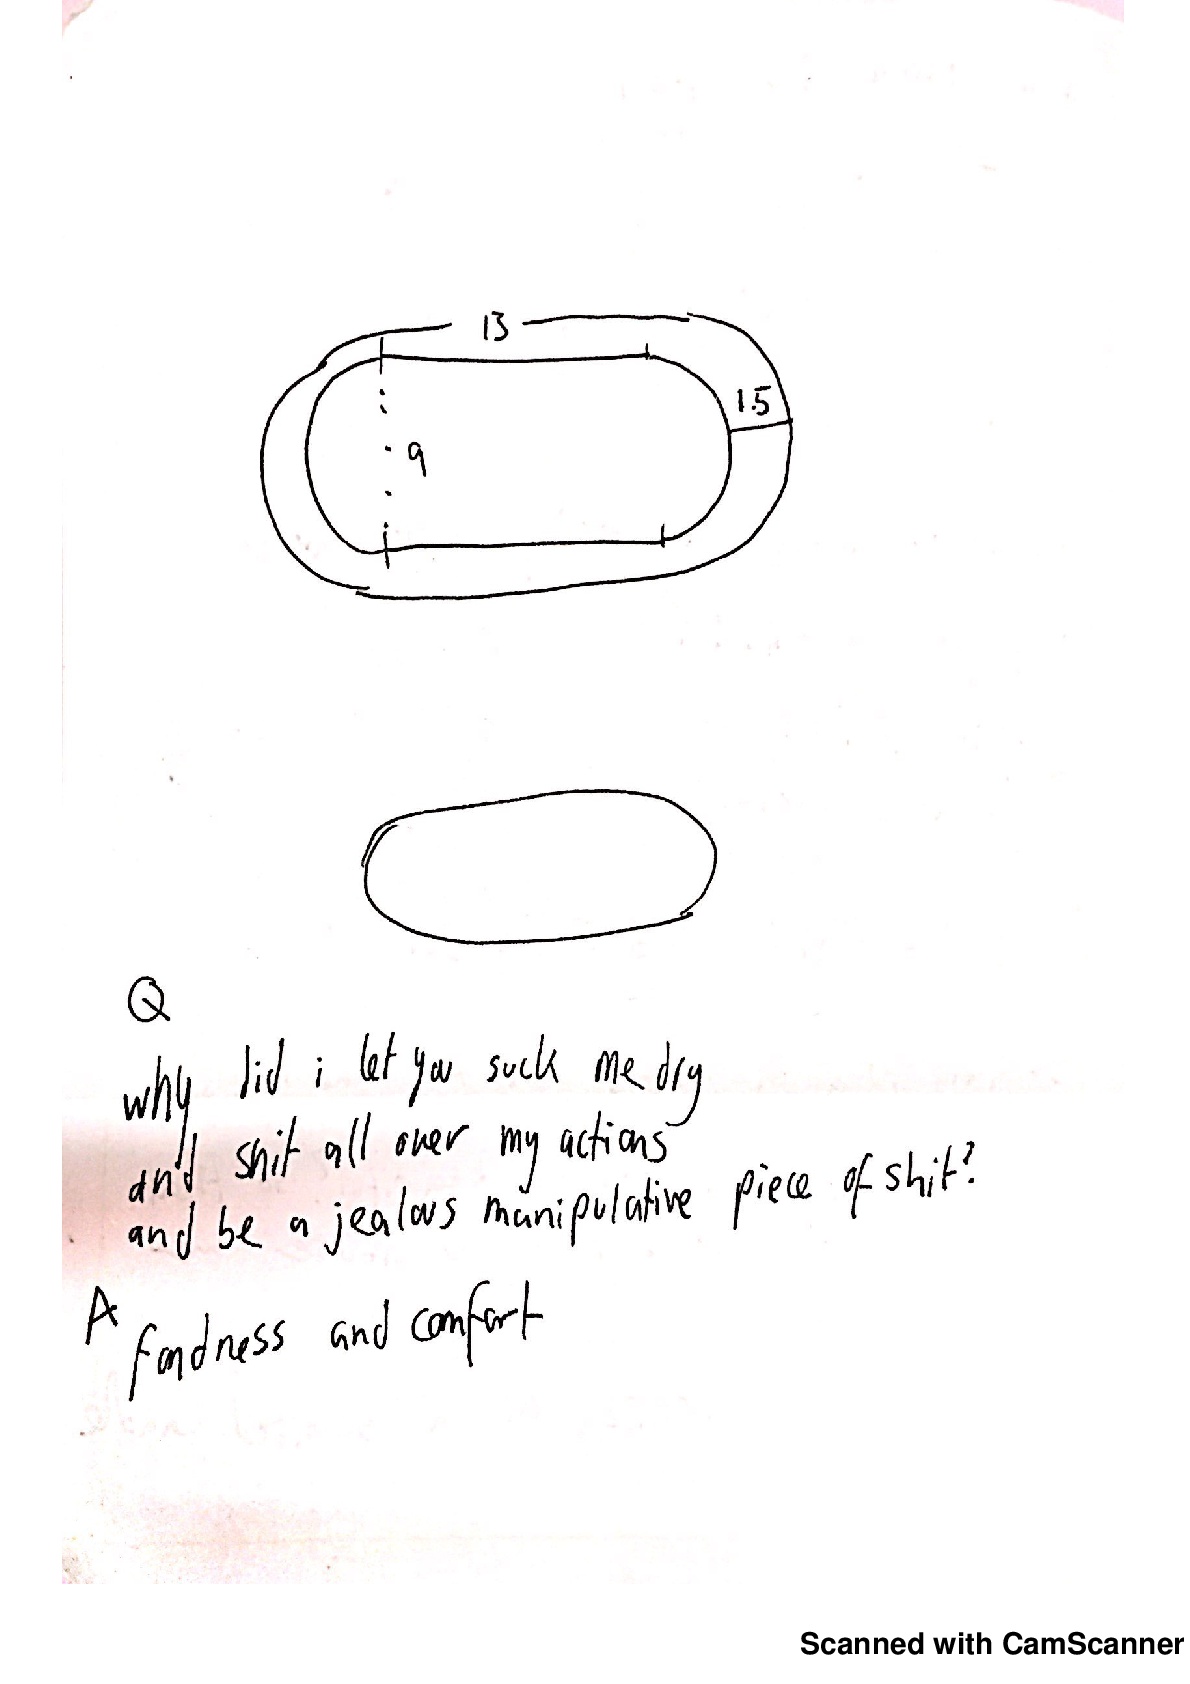 13
1.5
9
Q
why did i let you suck me dry
and shit all over my actions
and be a jealous manipulative piece of shit?
A
fondness and comfort
Scanned with CamScanner